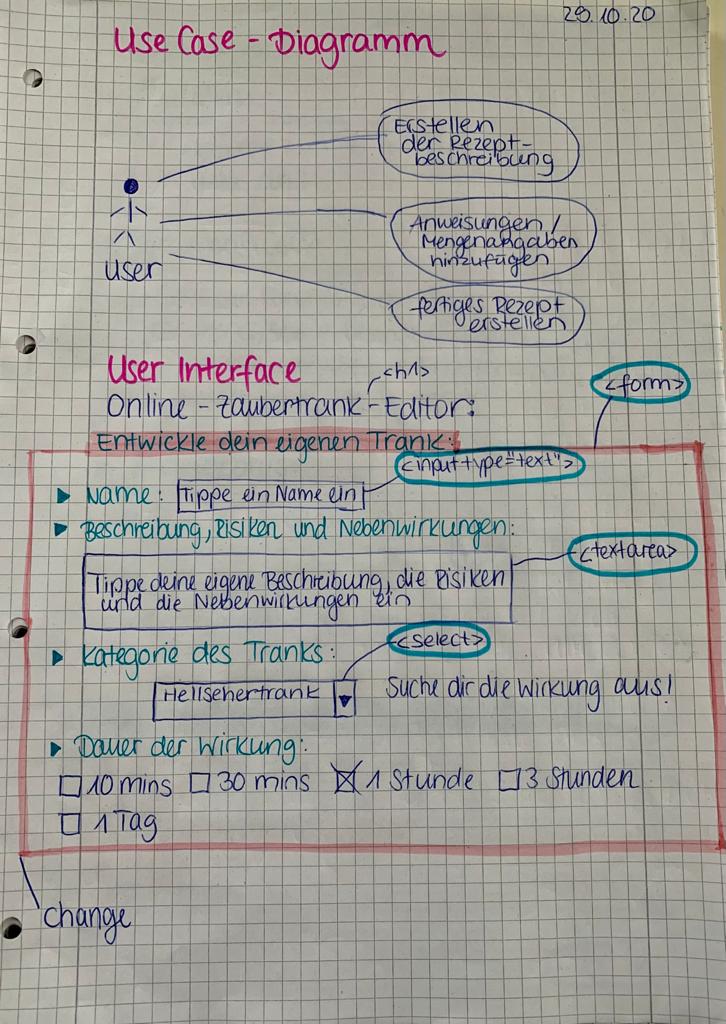 29.10.20
Use Case - Diagramm
Erstellen
der Rezept-
beschreibung
Anweisungen /
Mengenangaben
hinzufügen
user
fertiges Rezept
erstellen
User Interface
<h1>
<form>
Online - Zaubertrank - Editor:
Entwickle dein eigenen Trank:
<input type="text">
Name: Tippe ein Name ein
Beschreibung, Risiken und Nebenwirkungen:
<textarea>
Tippe deine eigene Beschreibung, die Risiken
und die Nebenwirkungen ein
<select>
Kategorie des Tranks:
Hellsehertrank Suche dir die Wirkung aus!
Dauer der Wirkung:
10 mins 30 mins 1 Stunde 3 Stunden
1 Tag
change